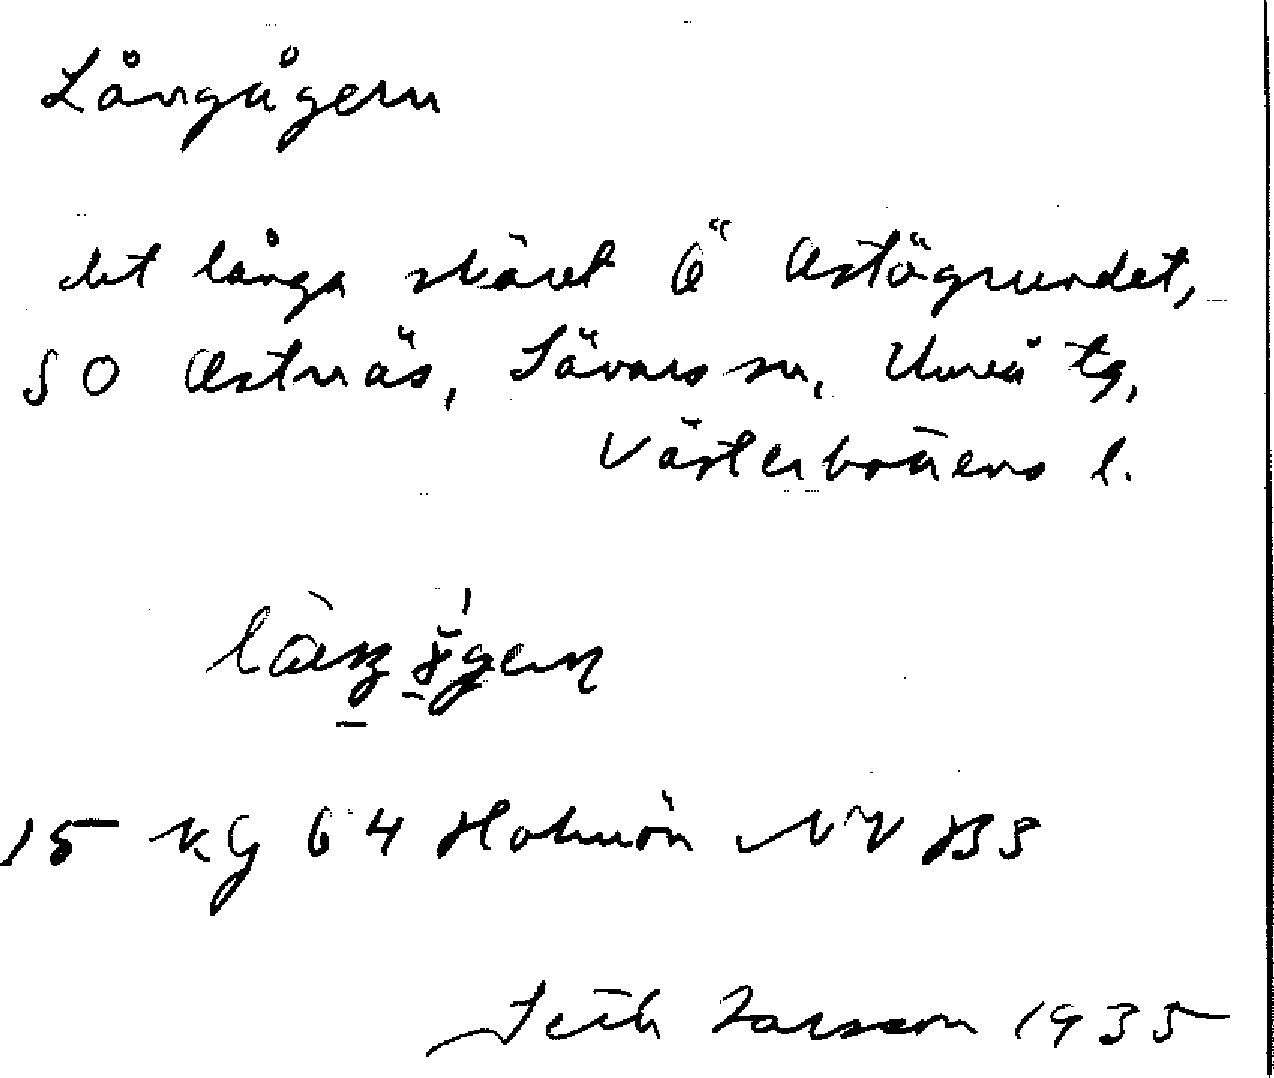 Långågern
det långa skäret Ö Ostögrundet,
SO Ostnäs, Sävars sn, Umeå tg,
Västerbottens l.
15 KG 64 Holmön NV B8
Seth Larsson 1935